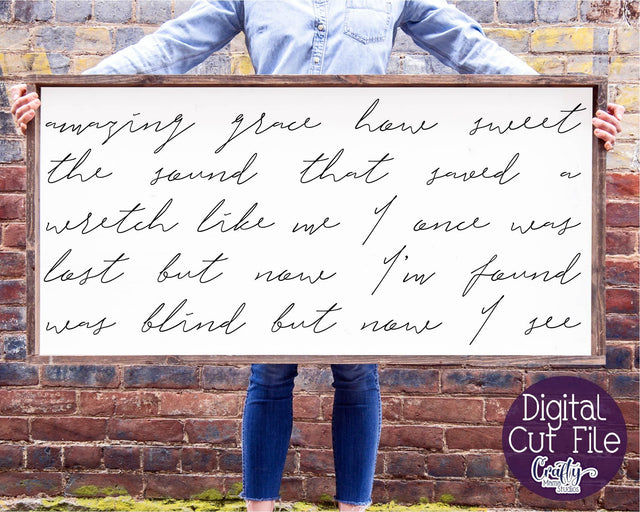 amazing grace how sweet
the sound that saved a
wretch like me I once was
lost but now I'm found
was blind but now I see
Digital
Cut File
Crafty
Mama
Studios